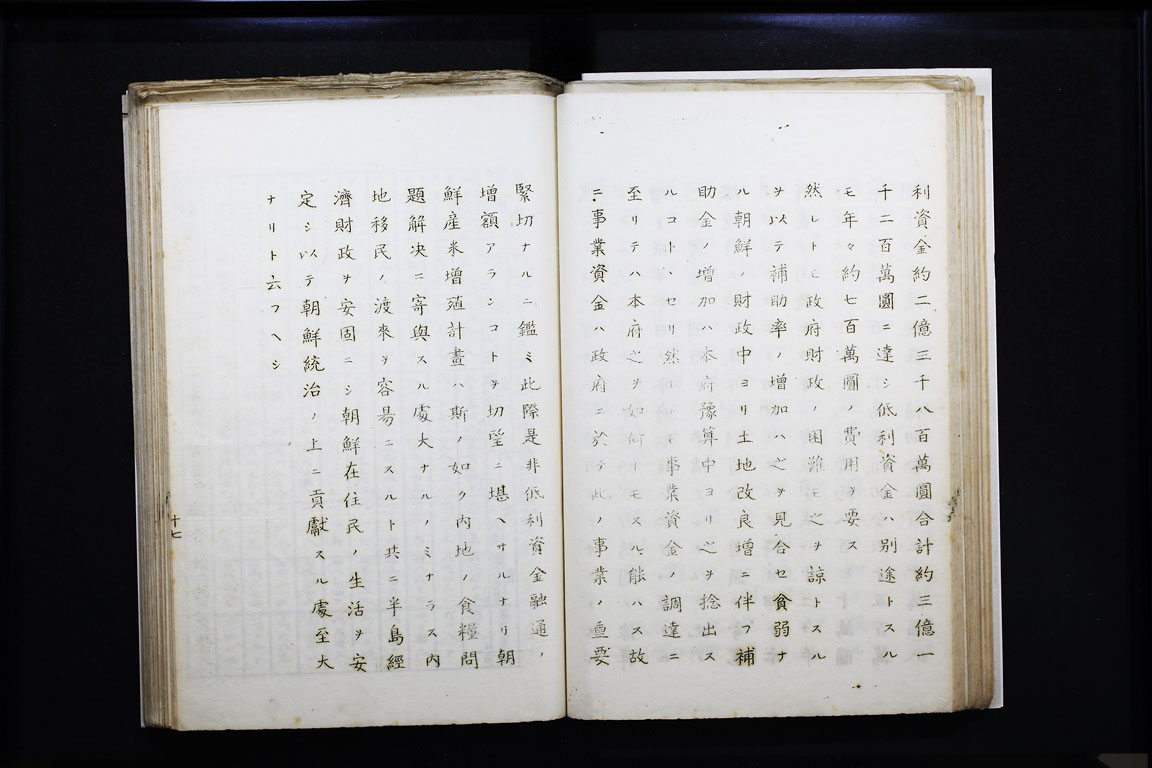 利資金約二億三千八百萬圓合計約三億一
千二百萬圓ニ達シ低利資金ハ別途トスル
モ年々約七百萬圓ノ費用ヲ要ス
然レトモ政府財政ノ困難モ之ヲ諒トスル
ヲ以テ補助率ノ増加ハ之ヲ見合セ貧弱ナ
ル朝鮮ノ財政中ヨリ土地改良増ニ伴フ補
助金ノ増加ハ本府豫算中ヨリ之ヲ捻出ス
ルコトヽセリ然レトモ事業資金ノ調達ニ
至リテハ本府之ヲ如何トモスル能ハス故
ニ事業資金ハ政府ニ於テ此ノ事業ノ重要
緊切ナルニ鑑ミ此際是非低利資金融通ノ
増額アランコトヲ切望ニ堪ヘサルナリ朝
鮮産米増殖計畫ハ斯ノ如ク内地ノ食糧問
題解决ニ寄與スル處大ナルノミナラス内
地移民ノ渡來ヲ容易ニスルト共ニ半島經
濟財政ヲ安固ニシ朝鮮在住民ノ生活ヲ安
定シ以テ朝鮮統治ノ上ニ貢獻スル處至大
ナリト云フヘシ
十七